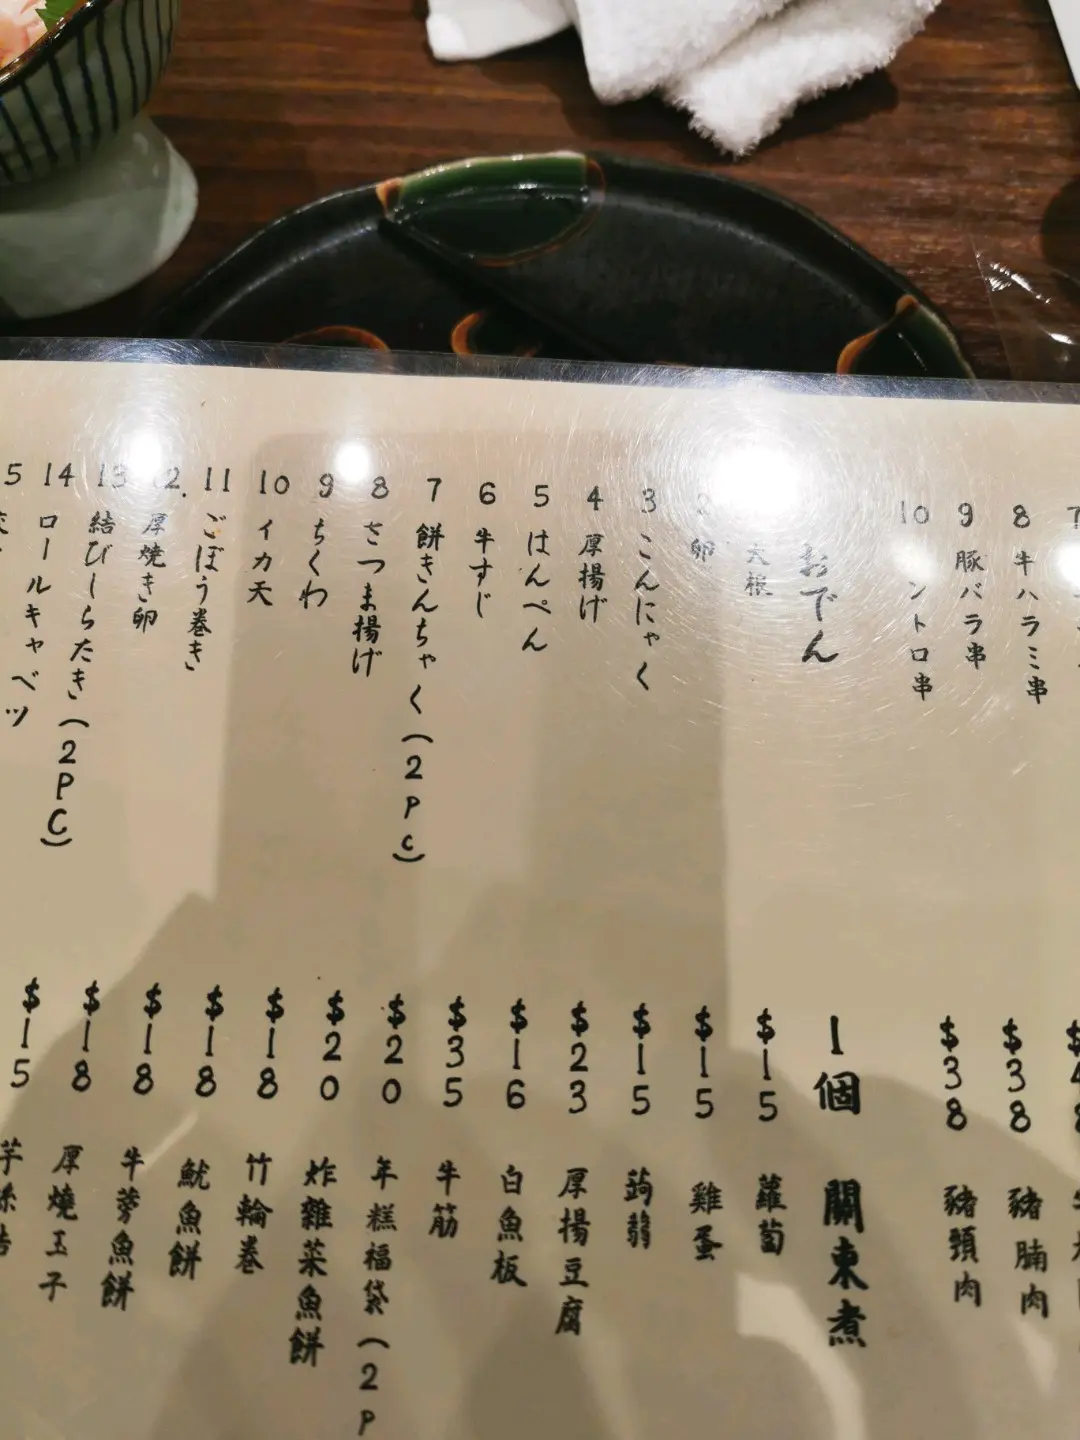 8 牛ハラミ串 $38 豬腩肉
9 豚バラ串 $38 豬頸肉
10 ントロ串
おでん 1個 關東煮
大根 $15 蘿蔔
2 卵 $15 雞蛋
3 こんにゃく $15 蒟蒻
4 厚揚げ $23 厚揚豆腐
5 はんぺん $16 白魚板
6 牛すじ $35 牛筋
7 餅きんちゃく(2Pc) $20 年糕福袋(2P
8 さつま揚げ $20 炸雜菜魚餅
9 ちくわ $18 竹輪卷
10 イカ天 $18 魷魚餅
11 ごぼう巻き $18 牛蒡魚餅
12. 厚焼き卵 $18 厚燒玉子
13 結びしらたき(2PC) $15
14 ロールキャベツ
5